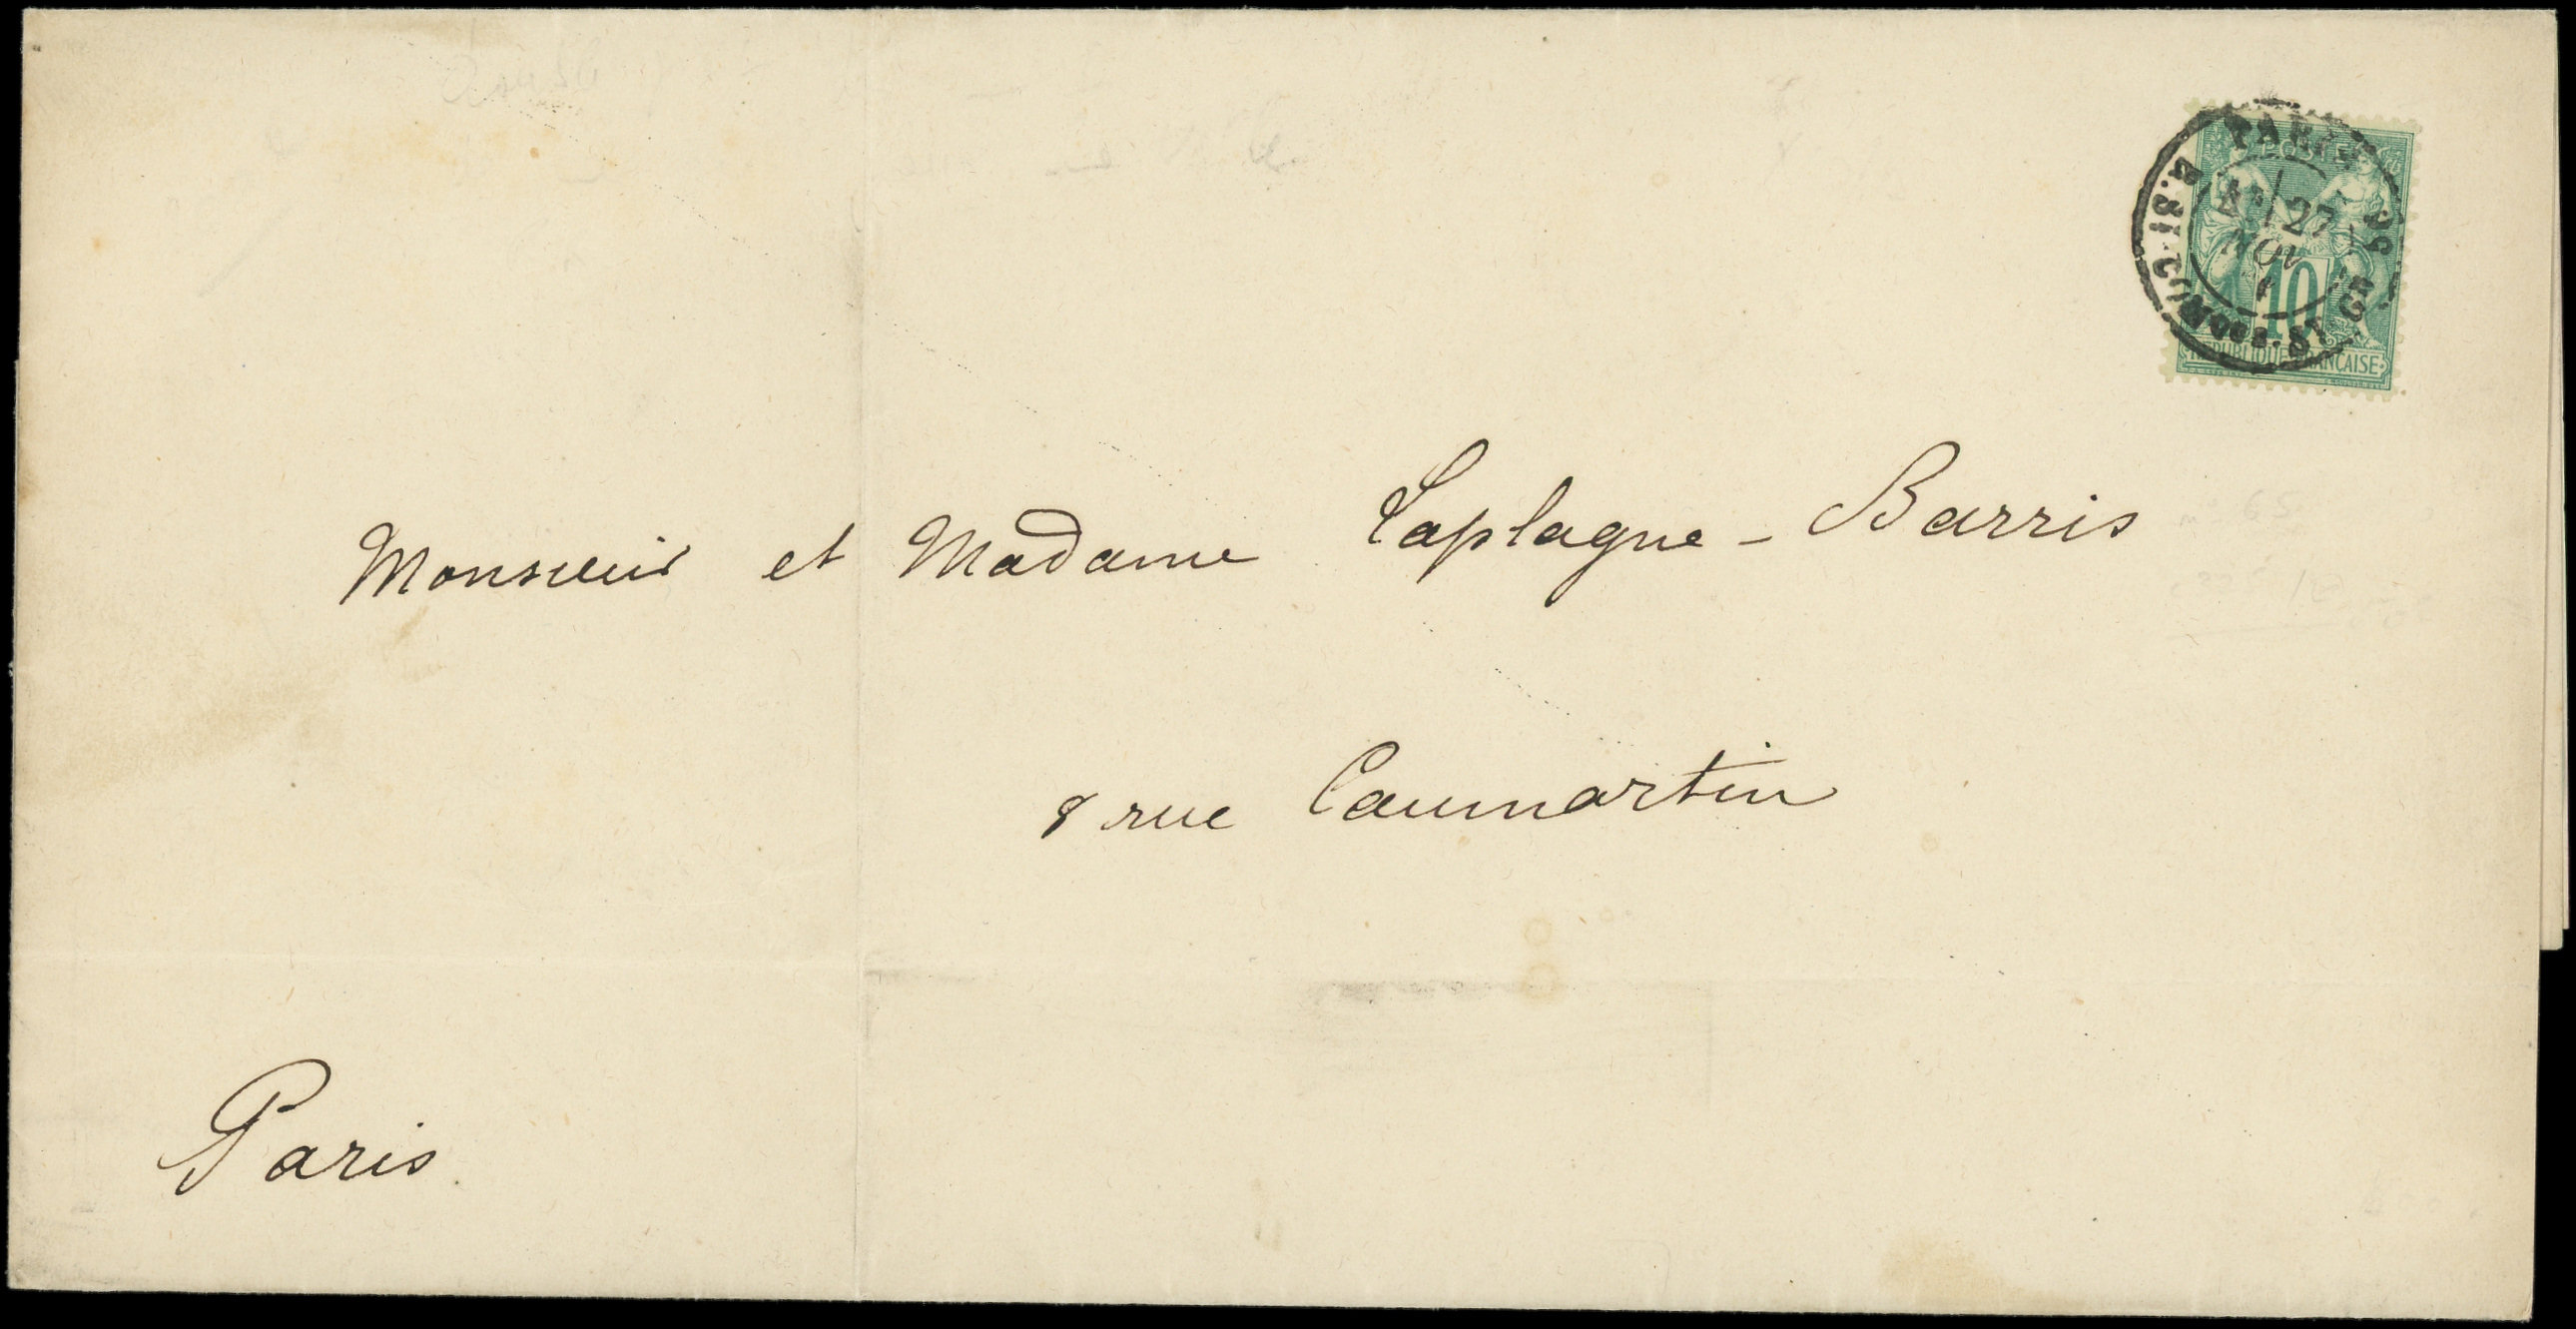 POSTE
10
REPUBLIQUE FRANCAISE
PARIS
27
NOV
Monsieur et Madame Laplagne-Barris
8 rue Caumartin
Paris